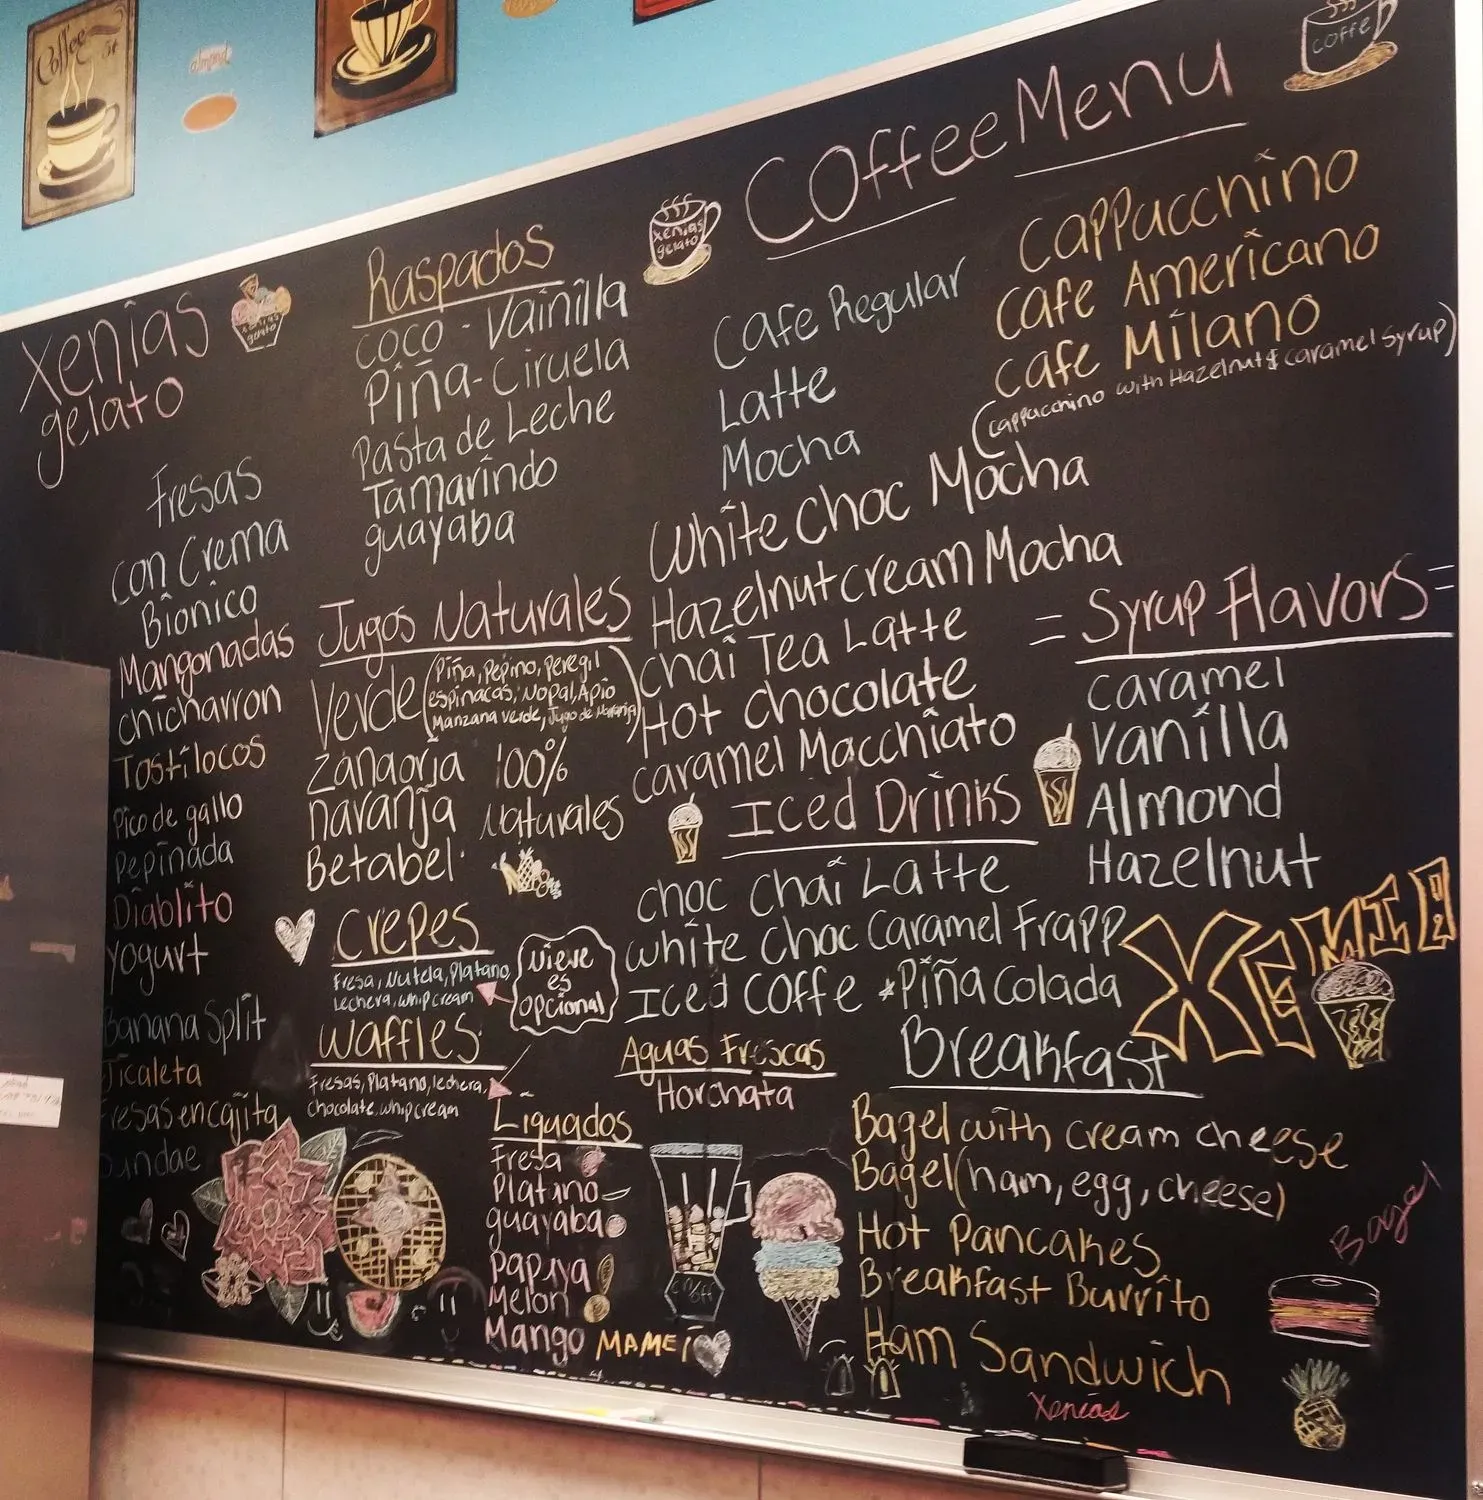 Coffee
almond
Xenias
gelato
xenias
gelato
Fresas
con Crema
Bionico
Mangonadas
chicharron
Tostilocos
Pico de gallo
Pepinada
Diablito
Yogurt
Banana Split
Jicaleta
Fresas encajita
Sundae
Raspados
coco - Vainilla
Piña - Ciruela
Pasta de Leche
Tamarindo
guayaba
Jugos Naturales
Verde (Piña, Pepino, Peregil
espinacas, Nopal, Apio
Manzana verde, Jugo de Naranja)
Zanaorja 100%
naranja Naturales
Betabel
Crepes
Fresa, Nutela, Platano
Lechera, whip cream
Nieve
es
opcional
Waffles
Fresas, Platano, lechera,
Chocolate, whip cream
Liquados
Fresa
Platano
guayaba
Papaya
Melon
Mango MAMEi
xenias
gelato
Coffee Menu
coffe
Cafe Regular
Latte
Mocha
Cappucchino
Cafe Americano
Cafe Milano
(Cappucchino with Hazelnut & caramel Syrup)
White Choc Mocha
Hazelnut cream Mocha
Chai Tea Latte
Hot chocolate
Caramel Macchiato
Iced Drinks
choc Chai Latte
White Choc Caramel Frapp
Iced Coffe *Piña Colada
Aguas Frescas
Horchata
= Syrup Flavors =
Caramel
Vanilla
Almond
Hazelnut
XENIA
Breakfast
Bagel with cream cheese
Bagel (ham, egg, cheese)
Hot Pancakes
Breakfast Burrito
Ham Sandwich
Bagel
Xenias